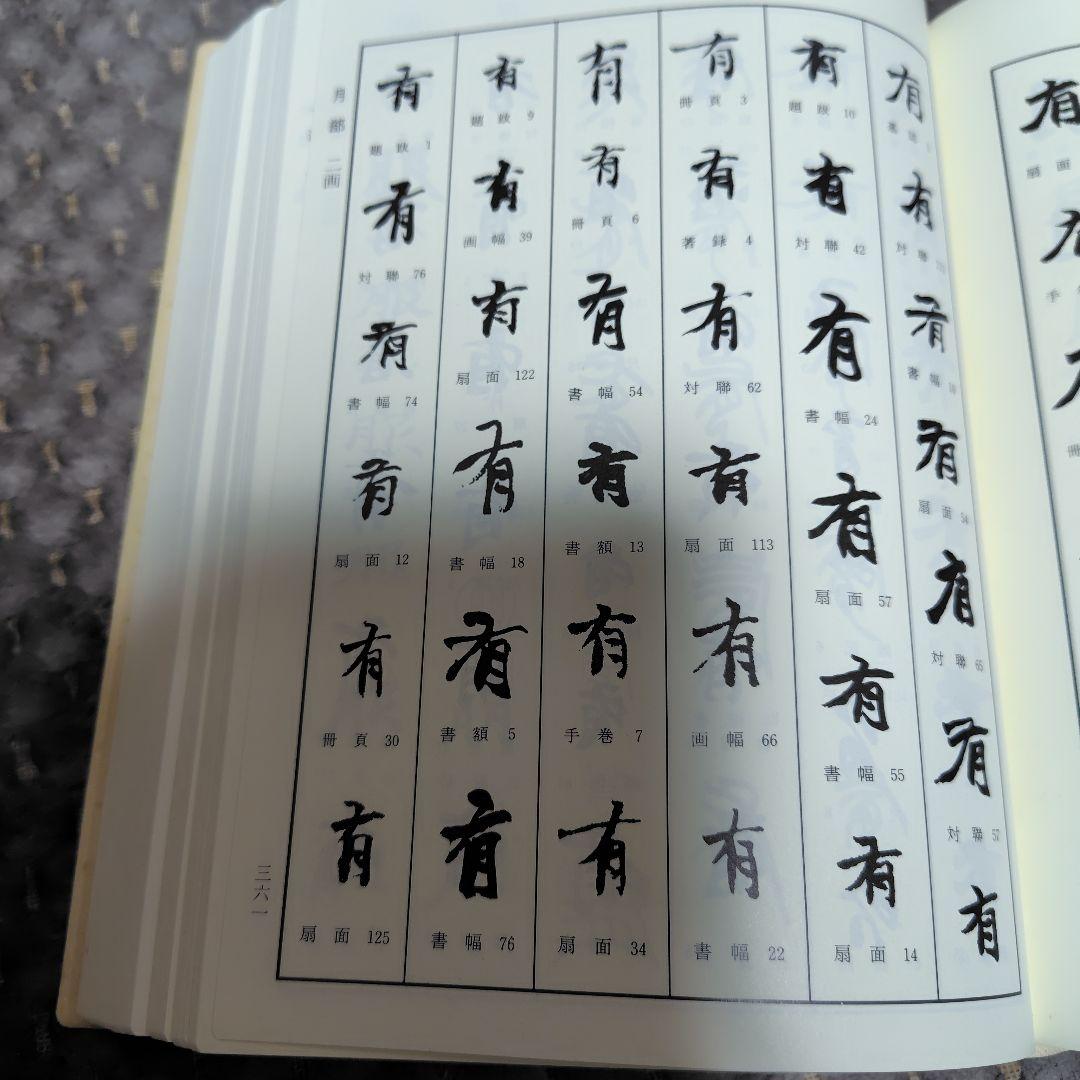 有
有
対聯
有
書幅
有
扇面
有
対聯 65
有
対聯 57
有
有
題跋 10
有
対聯 42
有
書幅 24
有
扇面 57
有
書幅 55
有
扇面 14
有
冊頁 3
有
著録 4
有
対聯 62
有
扇面 113
有
画幅 66
有
書幅 22
有
有
冊頁 6
有
書幅 54
有
書額 13
有
手巻 7
有
扇面 34
有
題跋 9
有
画幅 39
有
扇面 122
有
書幅 18
有
書額 5
有
書幅 76
有
題跋 1
有
対聯 76
有
書幅 74
有
扇面 12
有
冊頁 30
有
扇面 125
月部 二画
三六一
有
扇面
手
冊